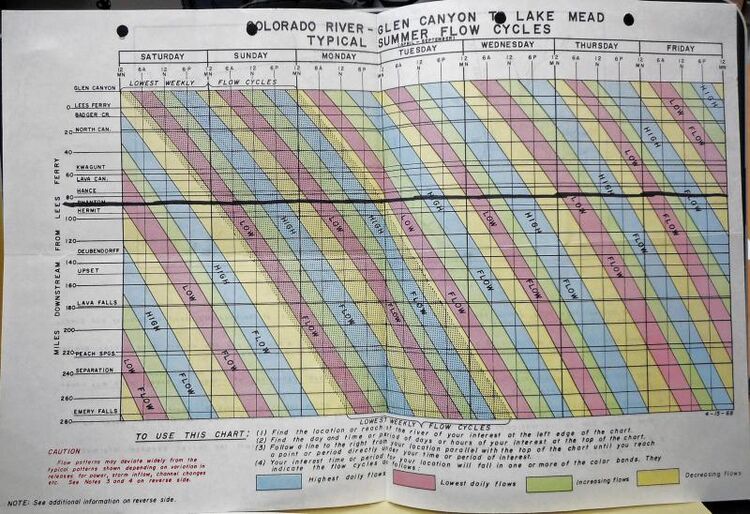 COLORADO RIVER-GLEN CANYON TO LAKE MEAD
TYPICAL SUMMER FLOW CYCLES
(APRIL - SEPTEMBER)
SATURDAY SUNDAY MONDAY TUESDAY WEDNESDAY THURSDAY FRIDAY
12 6A 12 6P 12 6A 12 6P 12 6A 12 6P 12 6A 12 6P 12 6A 12 6P 12 6A 12 6P 12 6A 12 6P 12
MN N MN N MN N MN N MN N MN N MN N MN
GLEN CANYON
LOWEST WEEKLY FLOW CYCLES
0 LEES FERRY
BADGER CR.
20 NORTH CAN.
40
KWAGUNT
60 LAVA CAN.
HANCE
80 PHANTOM
HERMIT
100
120
DEUBENDORFF
140
UPSET
160
180 LAVA FALLS
200
220 PEACH SPGS.
240 SEPARATION
260
EMERY FALLS
280
MILES DOWNSTREAM FROM LEES FERRY
HIGH FLOW
LOW FLOW
HIGH FLOW
LOW FLOW
HIGH FLOW
LOW FLOW
HIGH FLOW
LOW FLOW
HIGH FLOW
LOW FLOW
HIGH FLOW
LOW FLOW
HIGH FLOW
LOW FLOW
HIGH
4-15-68
LOWEST WEEKLY FLOW CYCLES
TO USE THIS CHART:
(1) Find the location or reach of the river of your interest at the left edge of the chart.
(2) Find the day and time or period of days or hours of your interest at the top of the chart.
(3) Follow a line to the right from your location parallel with the top of the chart until you reach
a point or period directly under your time or period of interest.
(4) Your interest time or period for your location will fall in one or more of the color bands. They
indicate the flow cycles as follows:
CAUTION
Flow patterns may deviate widely from the
typical patterns shown depending on variation in
releases for power, storm inflow, channel changes
etc. See Notes 3 and 4 on reverse side.
Highest daily flows
Lowest daily flows
Increasing flows
Decreasing flows
NOTE: See additional information on reverse side.